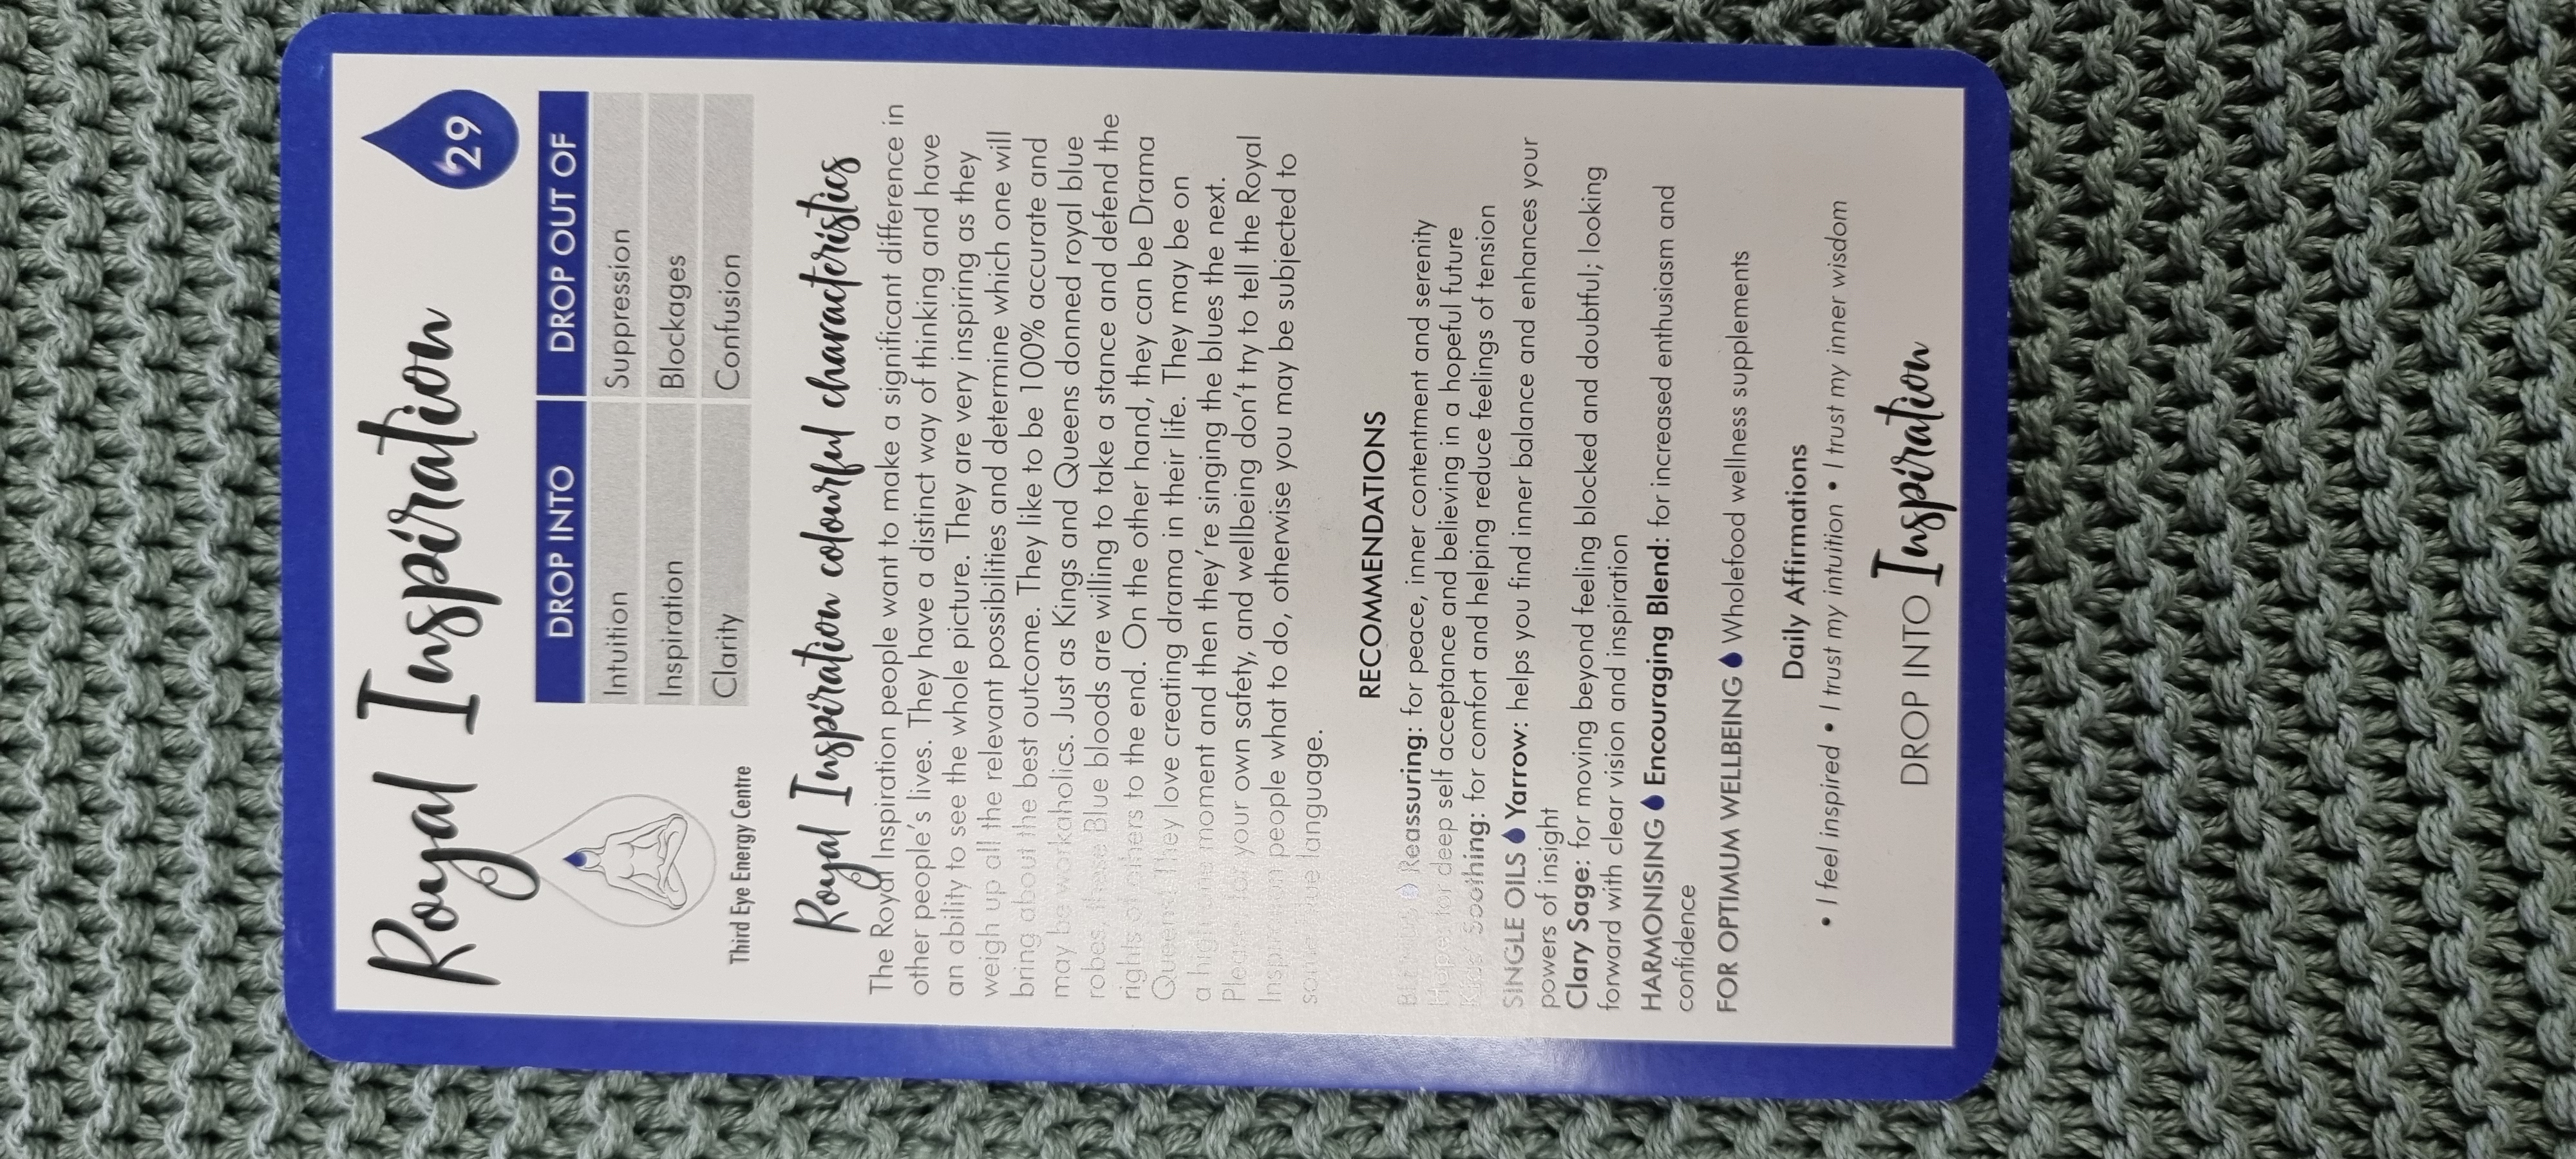 Royal Inspiration
29
Third Eye Energy Centre
DROP INTO DROP OUT OF
Intuition Suppression
Inspiration Blockages
Clarity Confusion
Royal Inspiration colourful characteristics
The Royal Inspiration people want to make a significant difference in
other people's lives. They have a distinct way of thinking and have
an ability to see the whole picture. They are very inspiring as they
weigh up all the relevant possibilities and determine which one will
bring about the best outcome. They like to be 100% accurate and
may be workaholics. Just as Kings and Queens donned royal blue
robes, these Blue bloods are willing to take a stance and defend the
rights of others to the end. On the other hand, they can be Drama
Queens. They love creating drama in their life. They may be on
a high one moment and then they're singing the blues the next.
Please, for your own safety, and wellbeing don't try to tell the Royal
Inspiration people what to do, otherwise you may be subjected to
some blue language.
RECOMMENDATIONS
Reassuring: for peace, inner contentment and serenity
for deep self acceptance and believing in a hopeful future
Soothing: for comfort and helping reduce feelings of tension
SINGLE OILS Yarrow: helps you find inner balance and enhances your
powers of insight
Clary Sage: for moving beyond feeling blocked and doubtful; looking
forward with clear vision and inspiration
HARMONISING Encouraging Blend: for increased enthusiasm and
confidence
FOR OPTIMUM WELLBEING Wholefood wellness supplements
Daily Affirmations
• I feel inspired • I trust my intuition • I trust my inner wisdom
DROP INTO Inspiration